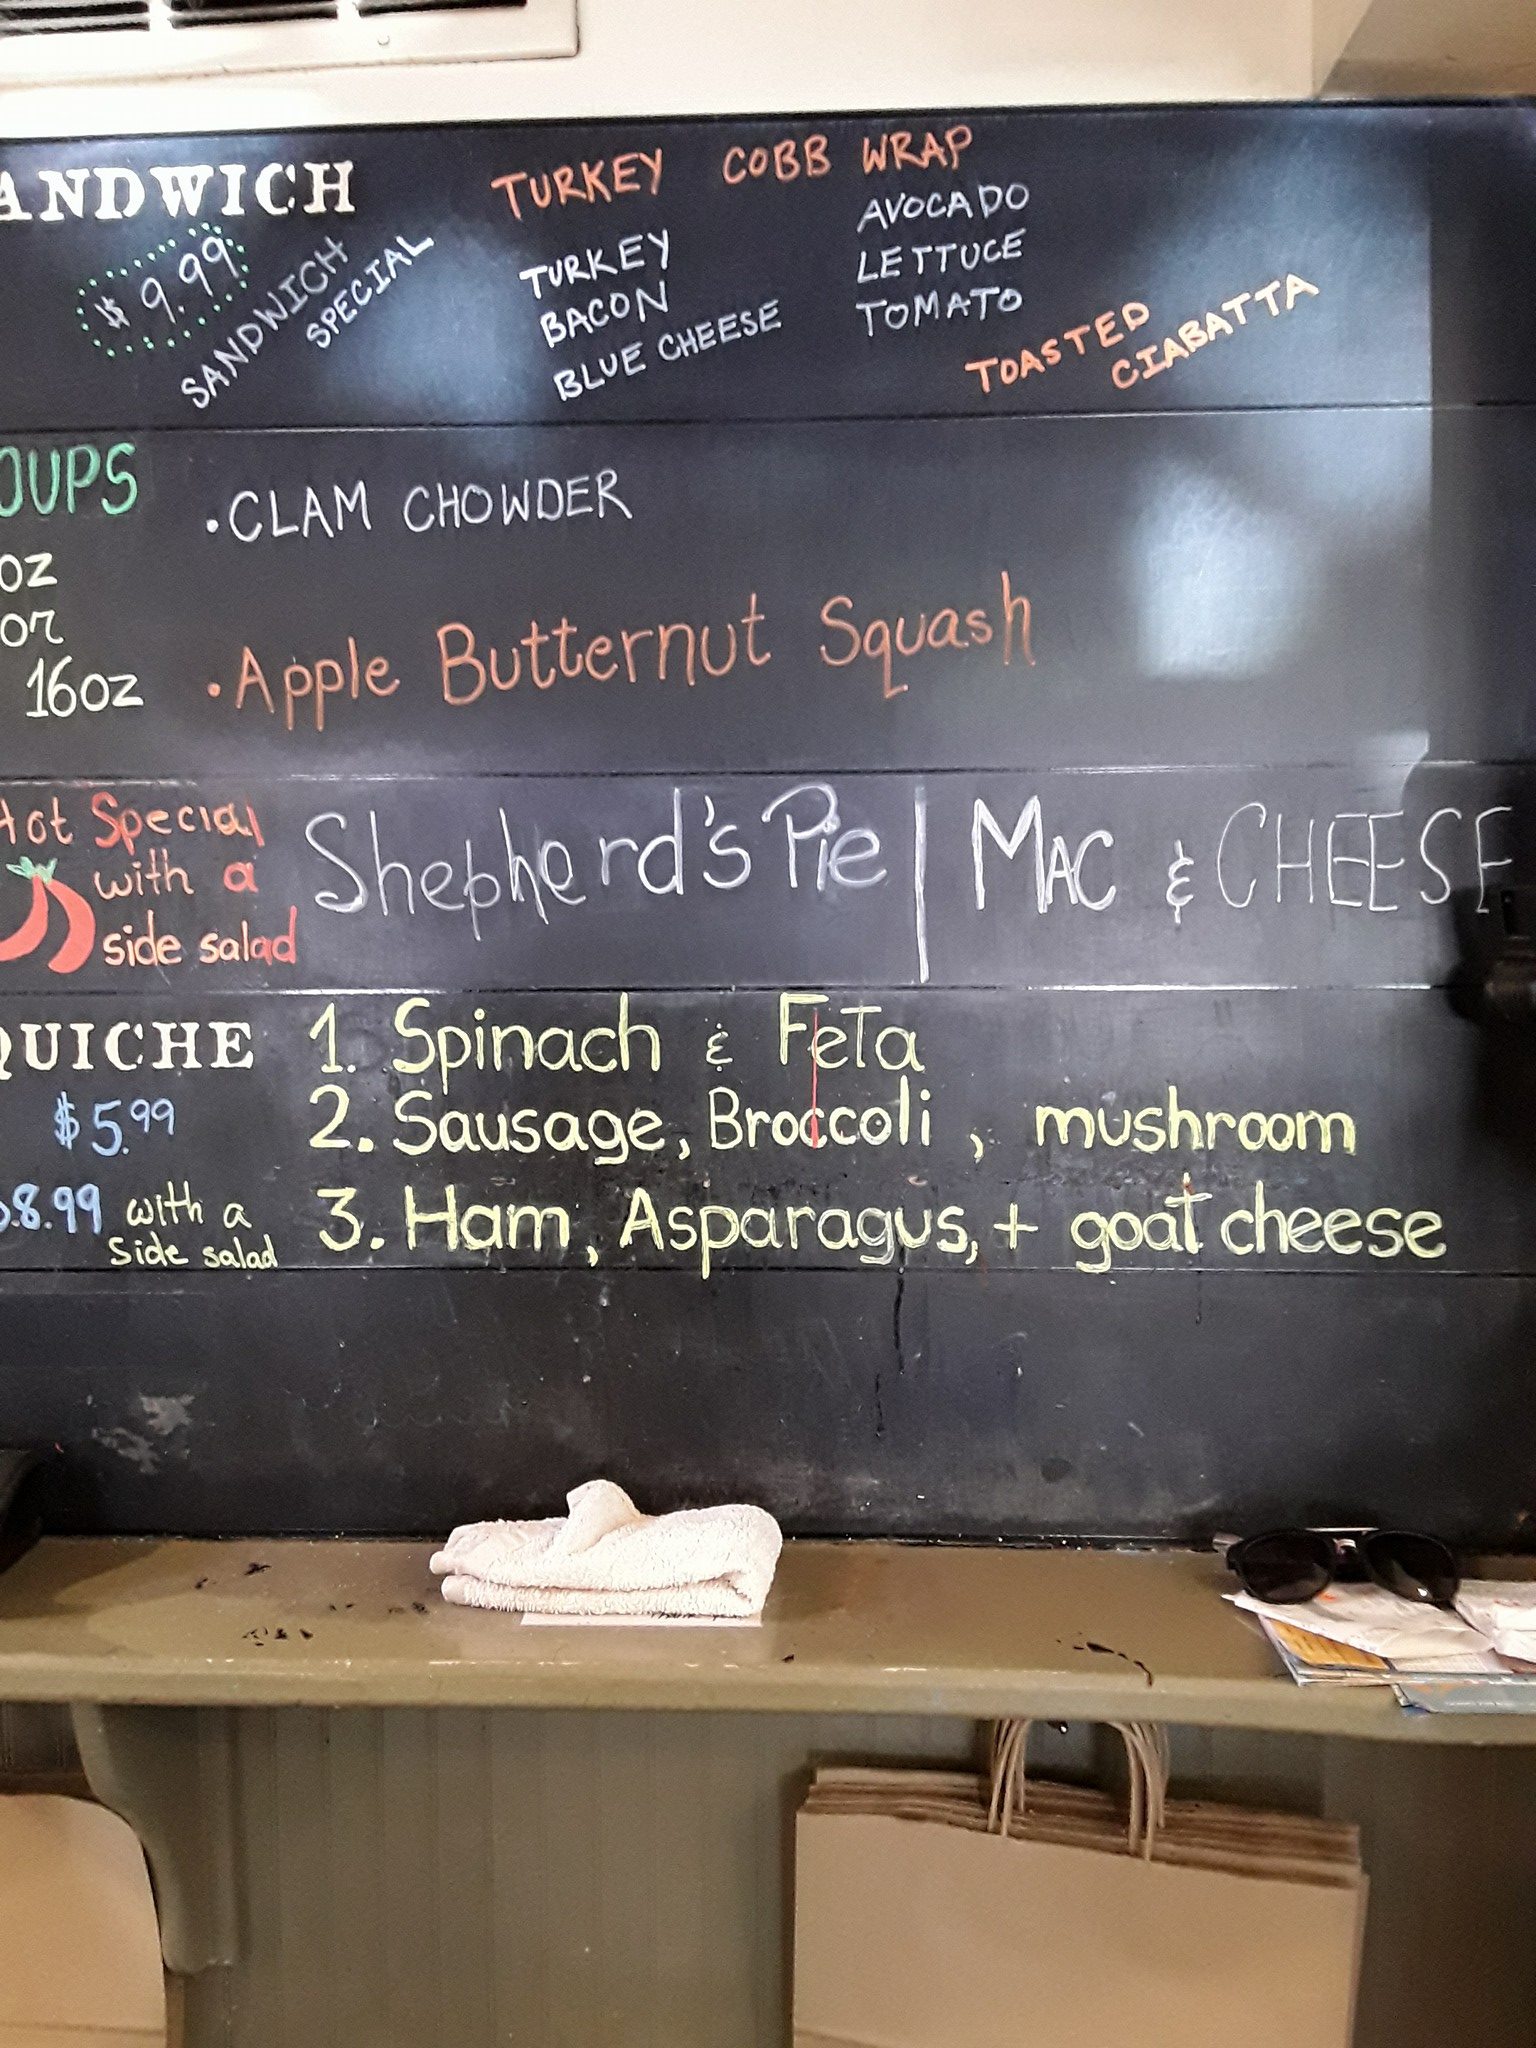 ANDWICH
$9.99
SANDWICH
SPECIAL
TURKEY COBB WRAP
TURKEY
BACON
BLUE CHEESE
AVOCADO
LETTUCE
TOMATO
TOASTED
CIABATTA
OUPS
oz
or
16oz
• CLAM CHOWDER
• Apple Butternut Squash
Hot Special
with a
side salad
Shepherd's Pie | MAC & CHEESE
QUICHE
$5.99
8.99 with a
side salad
1. Spinach & FeTa
2. Sausage, Broccoli, mushroom
3. Ham, Asparagus, + goat cheese